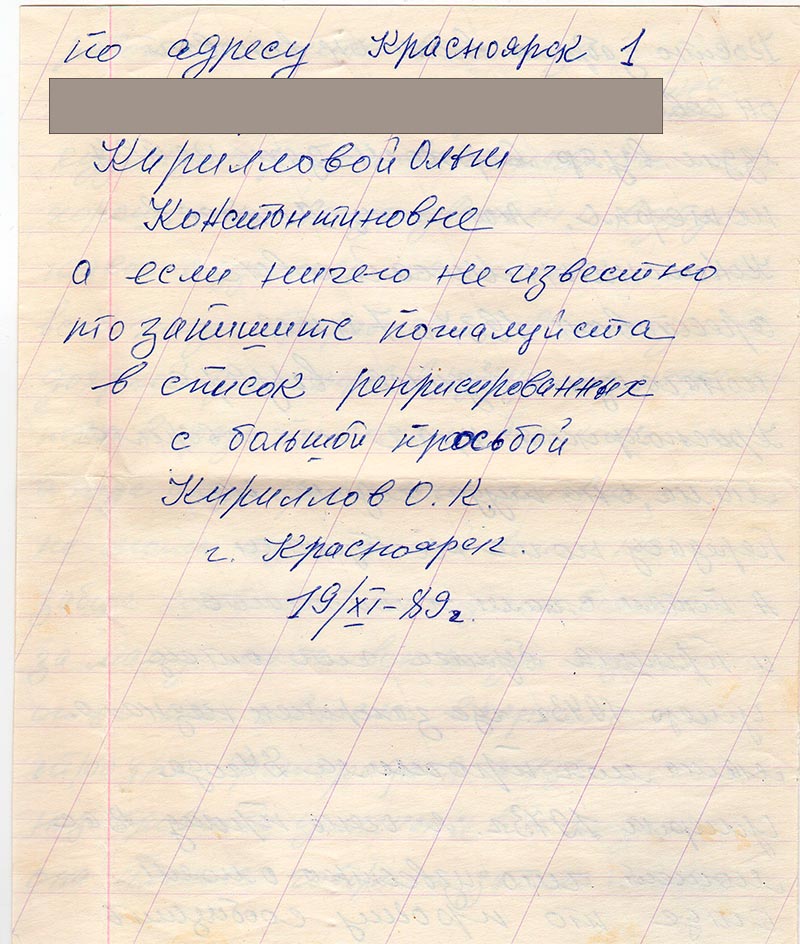 по адресу Красноярск 1
Кирилловой Ольги
Константиновне
а если ничего не известно
то запишите пожалуйста
в список реприсированных
с большой просьбой
Кириллов О. К.
г. Красноярск.
19/XI-89г.